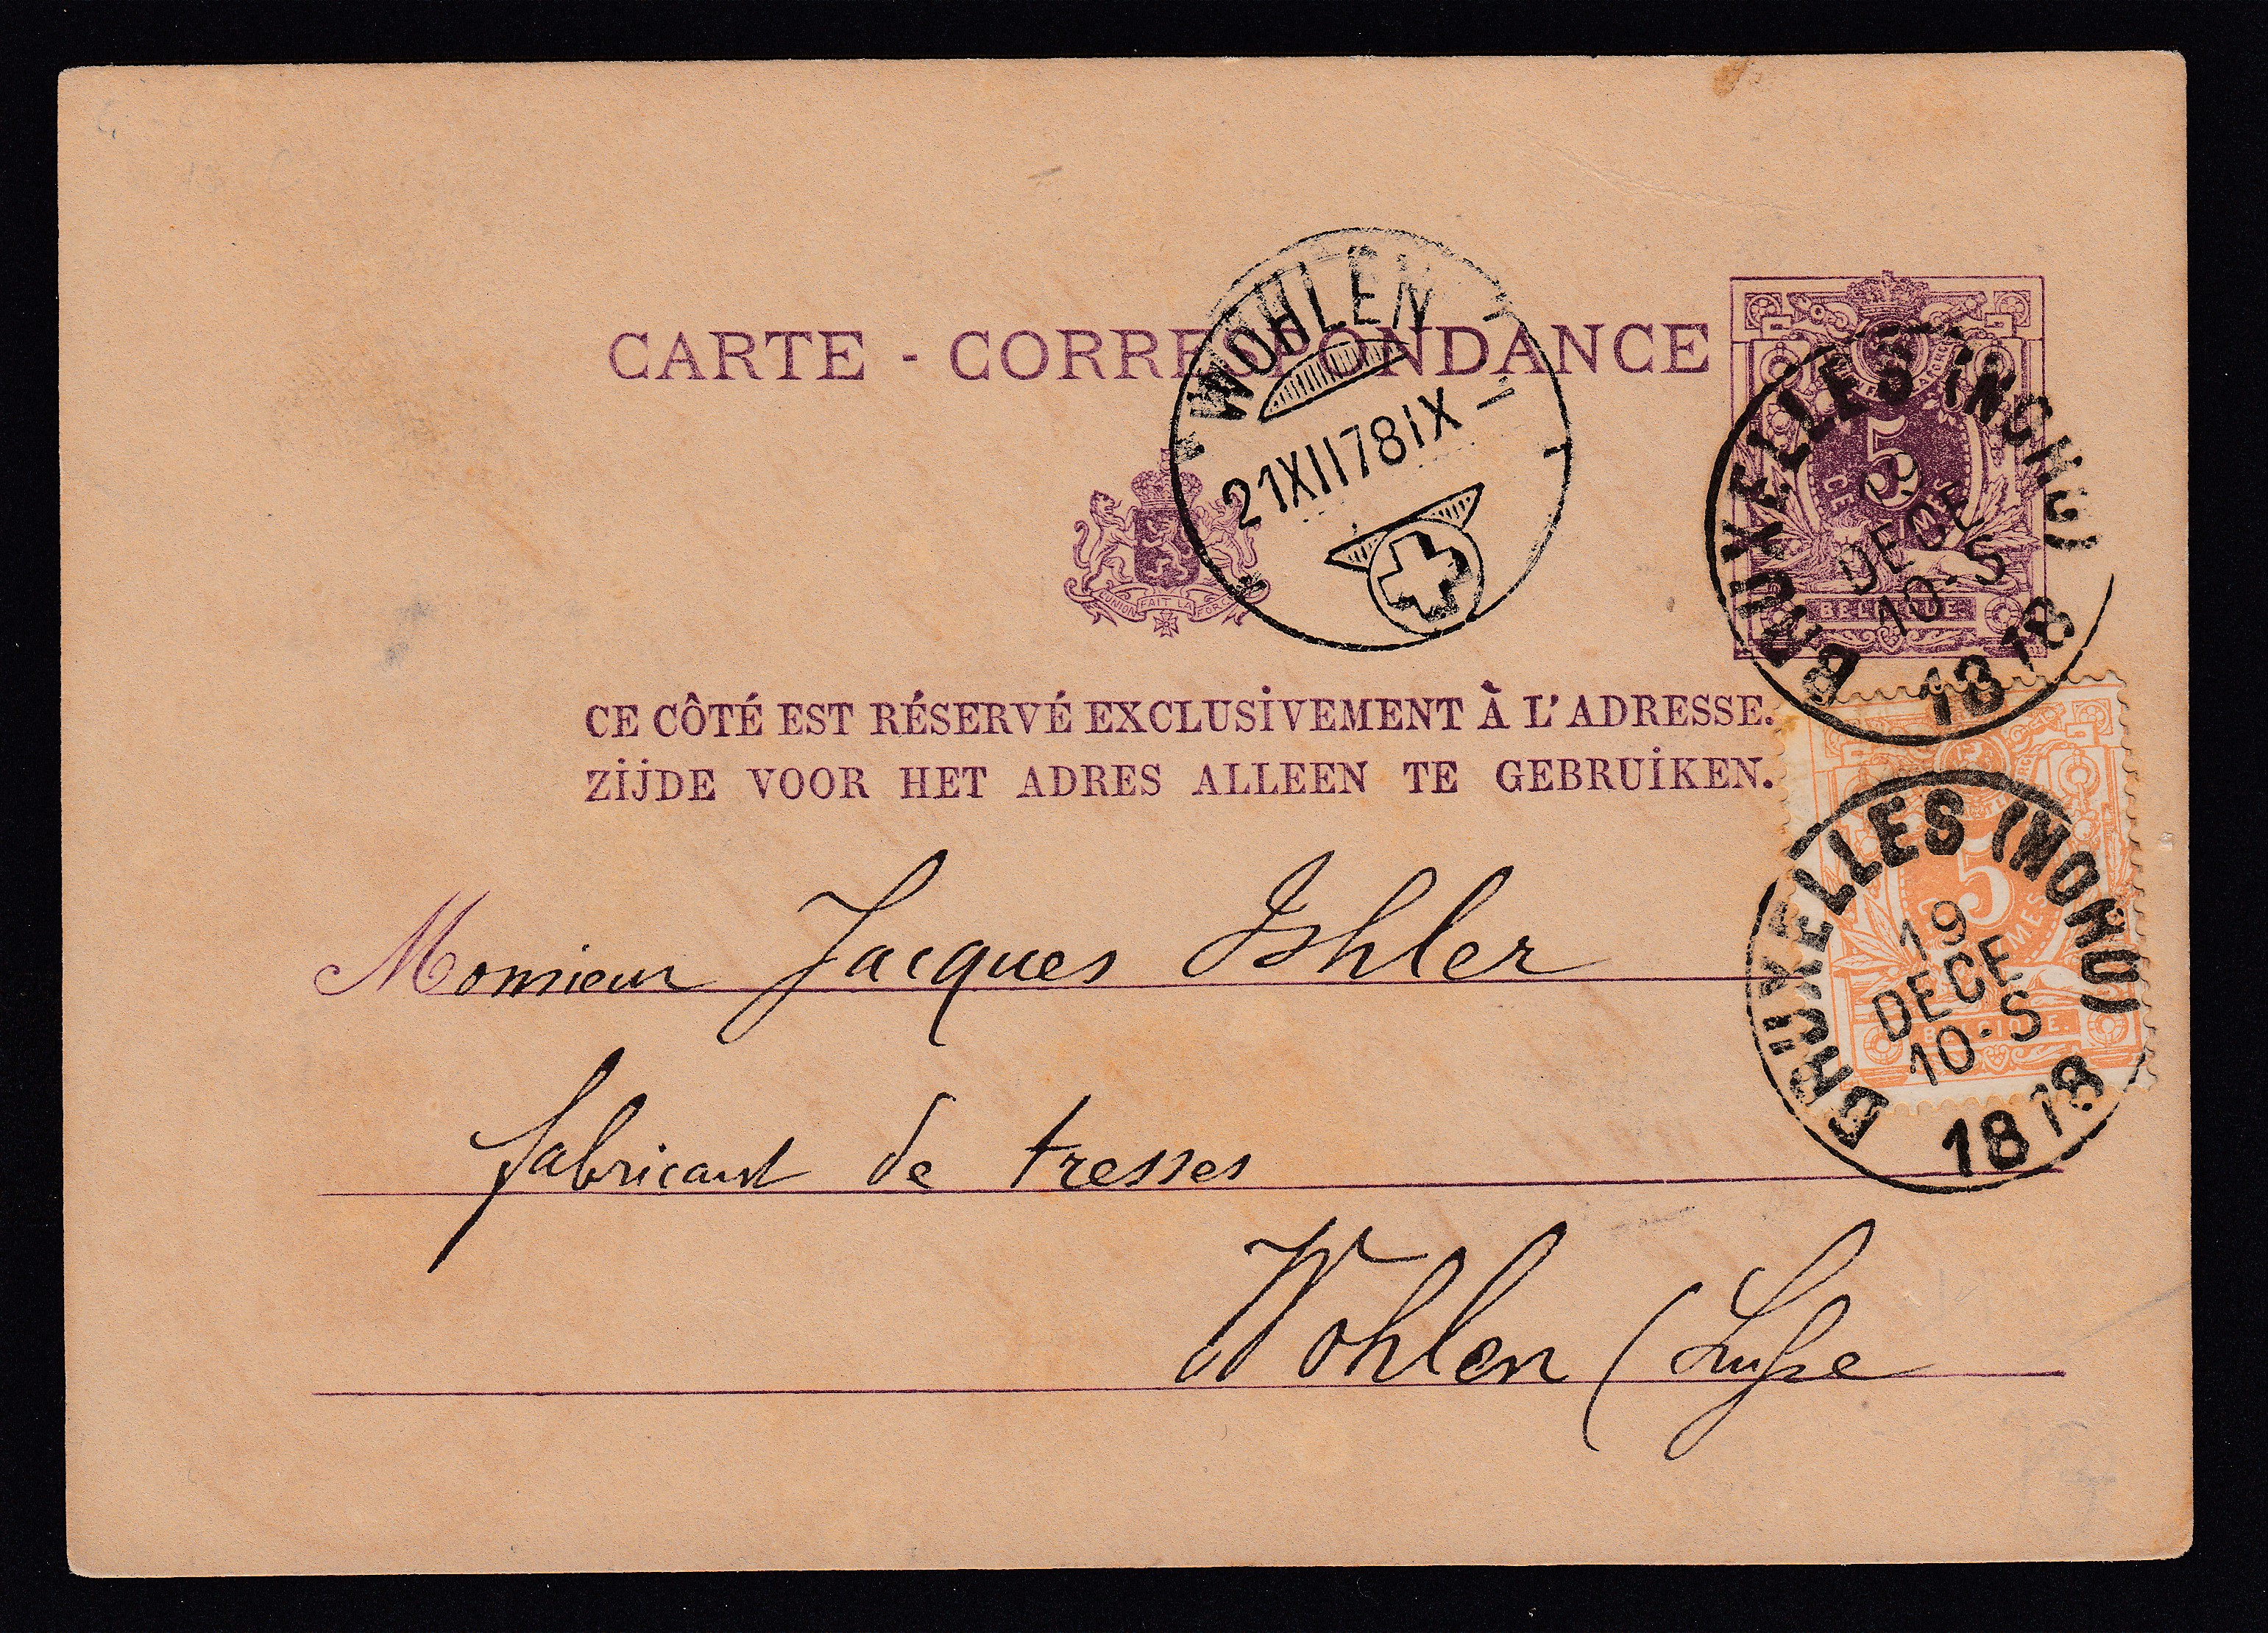 CARTE - CORRESPONDANCE
WOHLEN
21XII78IX
L'UNION FAIT LA FORCE
5
BELGIQUE
BRUXELLES (NORD)
DECE
10-S
1878
CE CÔTÉ EST RÉSERVÉ EXCLUSIVEMENT À L'ADRESSE.
ZIJDE VOOR HET ADRES ALLEEN TE GEBRUIKEN.
5
BELGIQUE
BRUXELLES (NORD)
19
DECE
10-S
1878
Monsieur Jacques Ishler
fabricant de tresses
Wohlen (Suisse